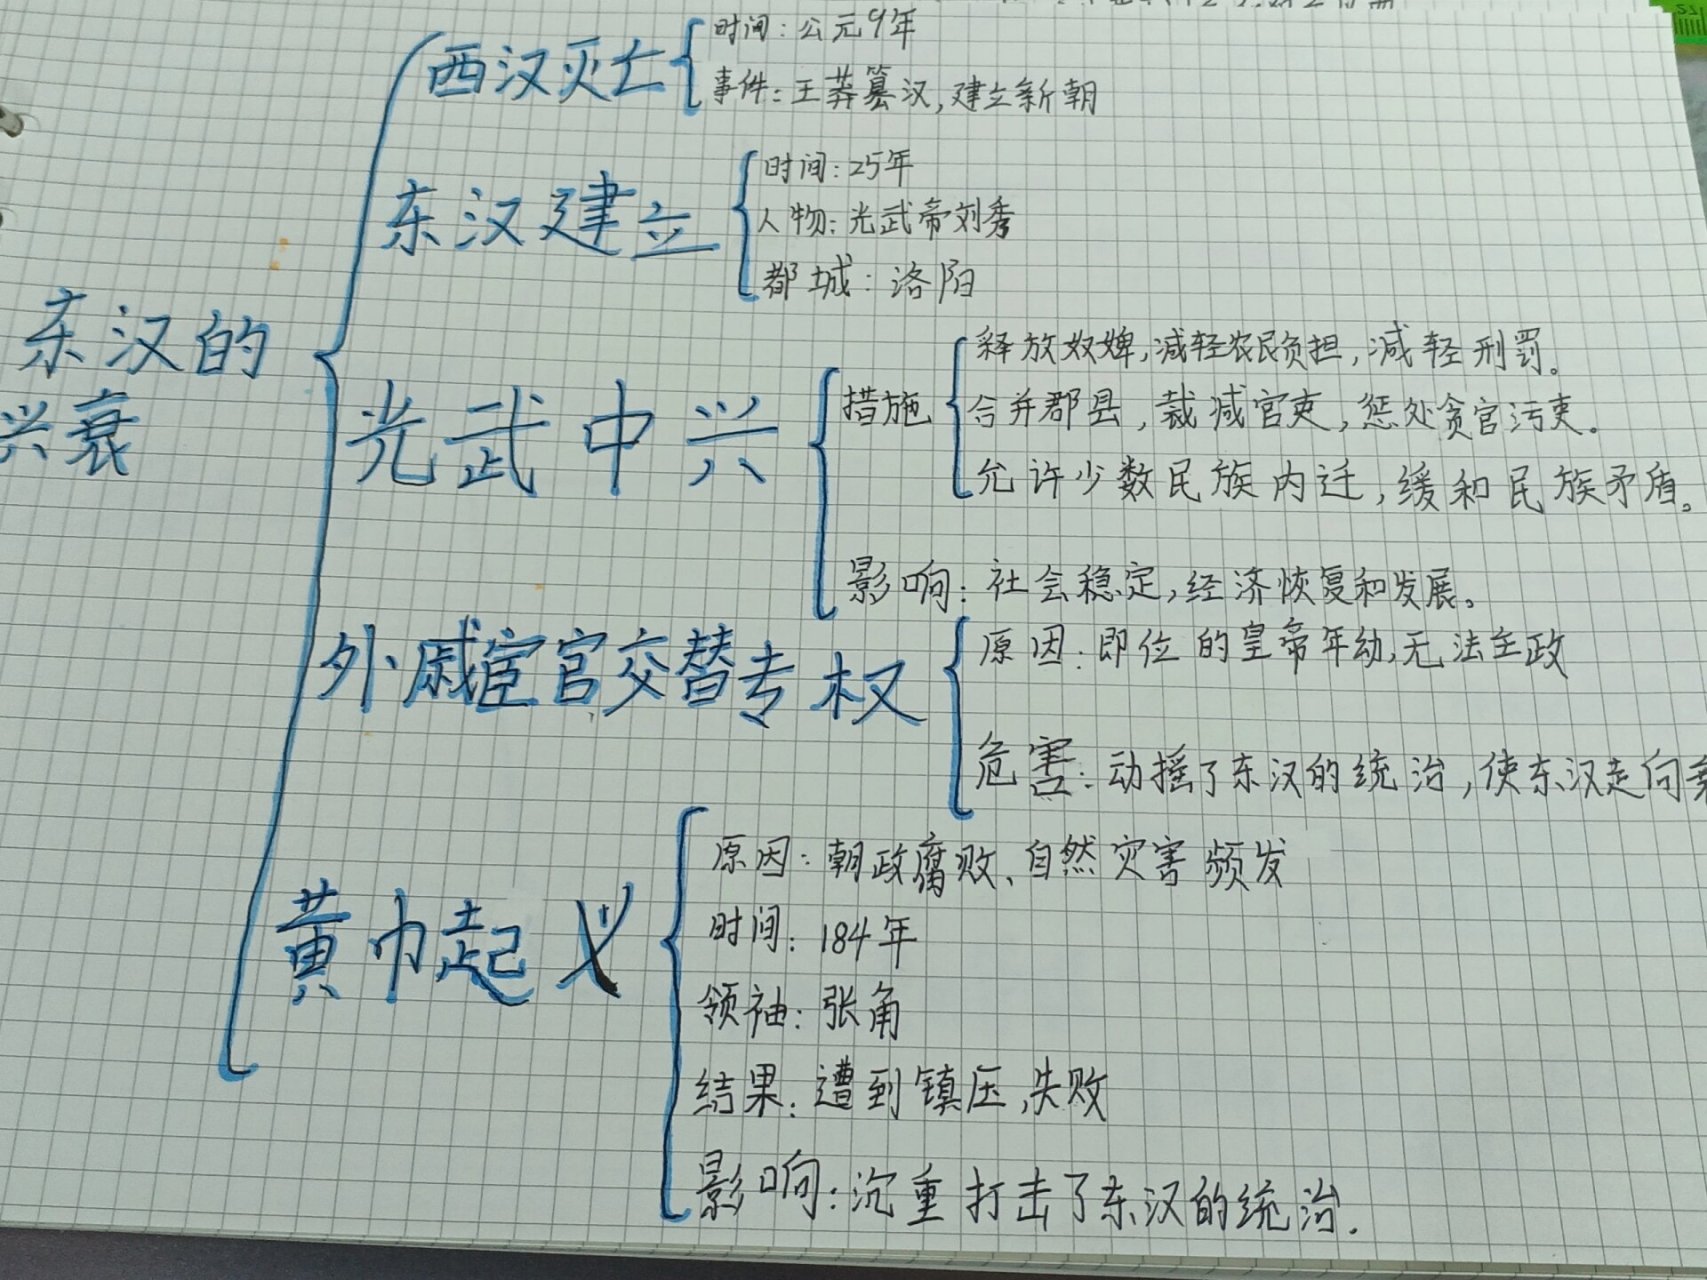 东汉的
兴衰
西汉灭亡
时间：公元9年
事件：王莽篡汉，建立新朝
东汉建立
时间：25年
人物：光武帝刘秀
都城：洛阳
光武中兴
措施
释放奴婢，减轻农民负担，减轻刑罚。
合并郡县，裁减官吏，惩处贪官污吏。
允许少数民族内迁，缓和民族矛盾。
影响：社会稳定，经济恢复和发展。
外戚宦官交替专权
原因：即位的皇帝年幼，无法主政
危害：动摇了东汉的统治，使东汉走向
黄巾起义
原因：朝政腐败、自然灾害频发
时间：184年
领袖：张角
结果：遭到镇压，失败
影响：沉重打击了东汉的统治.